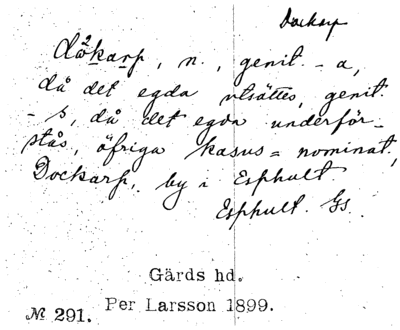 Dockarp
dòkarp, n., genit. -a,
då det egda utsättes, genit.
-s, då det egda underför-
stås, öfriga kasus = nominat.,
Dockarp, by i Esphult
Esphult. Gs
Gärds hd.
Per Larsson 1899.
№ 291.